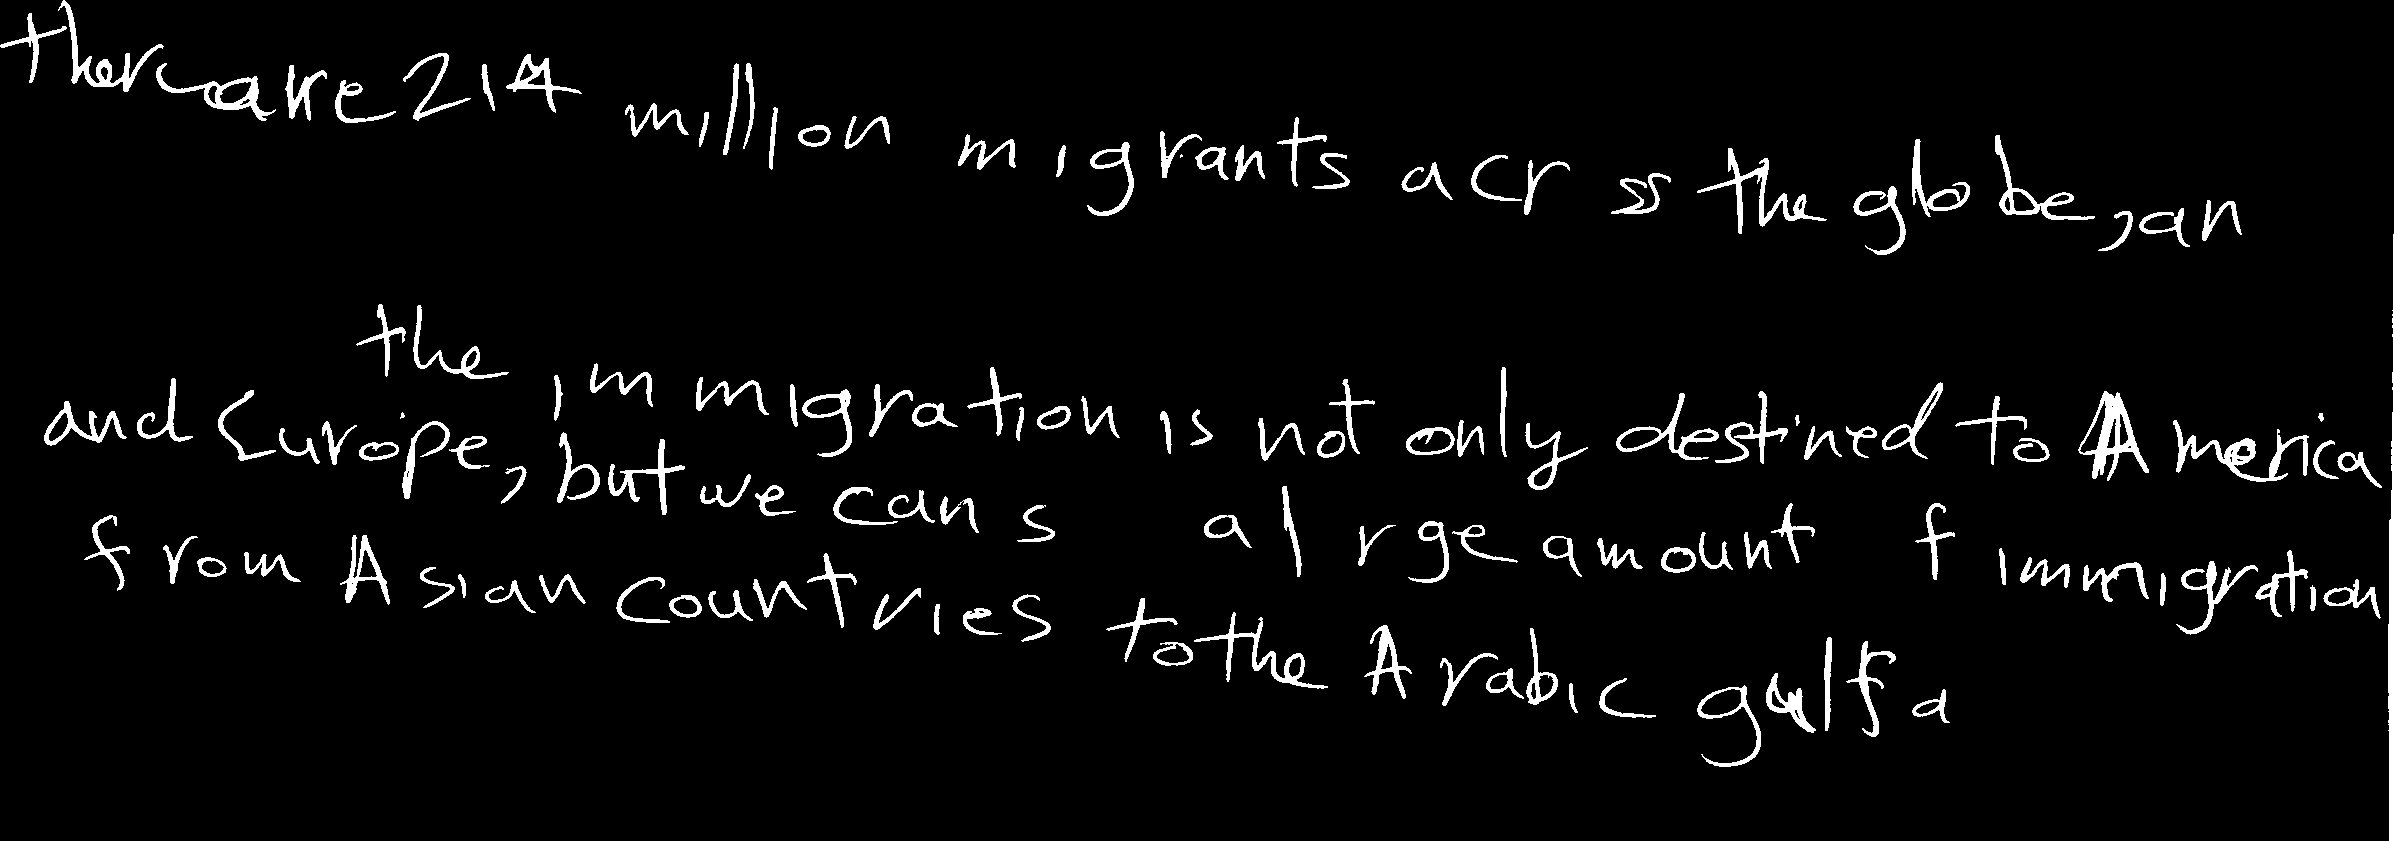 there are 214 million migrants acr ss the globe, an
the immigration is not only destined to America
and Europe, but we can s a l rge amount f immigration
from Asian countries to the Arabic gulf a